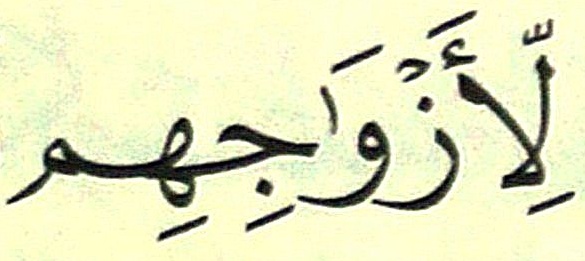 لِّأَزۡوَٰجِهِم